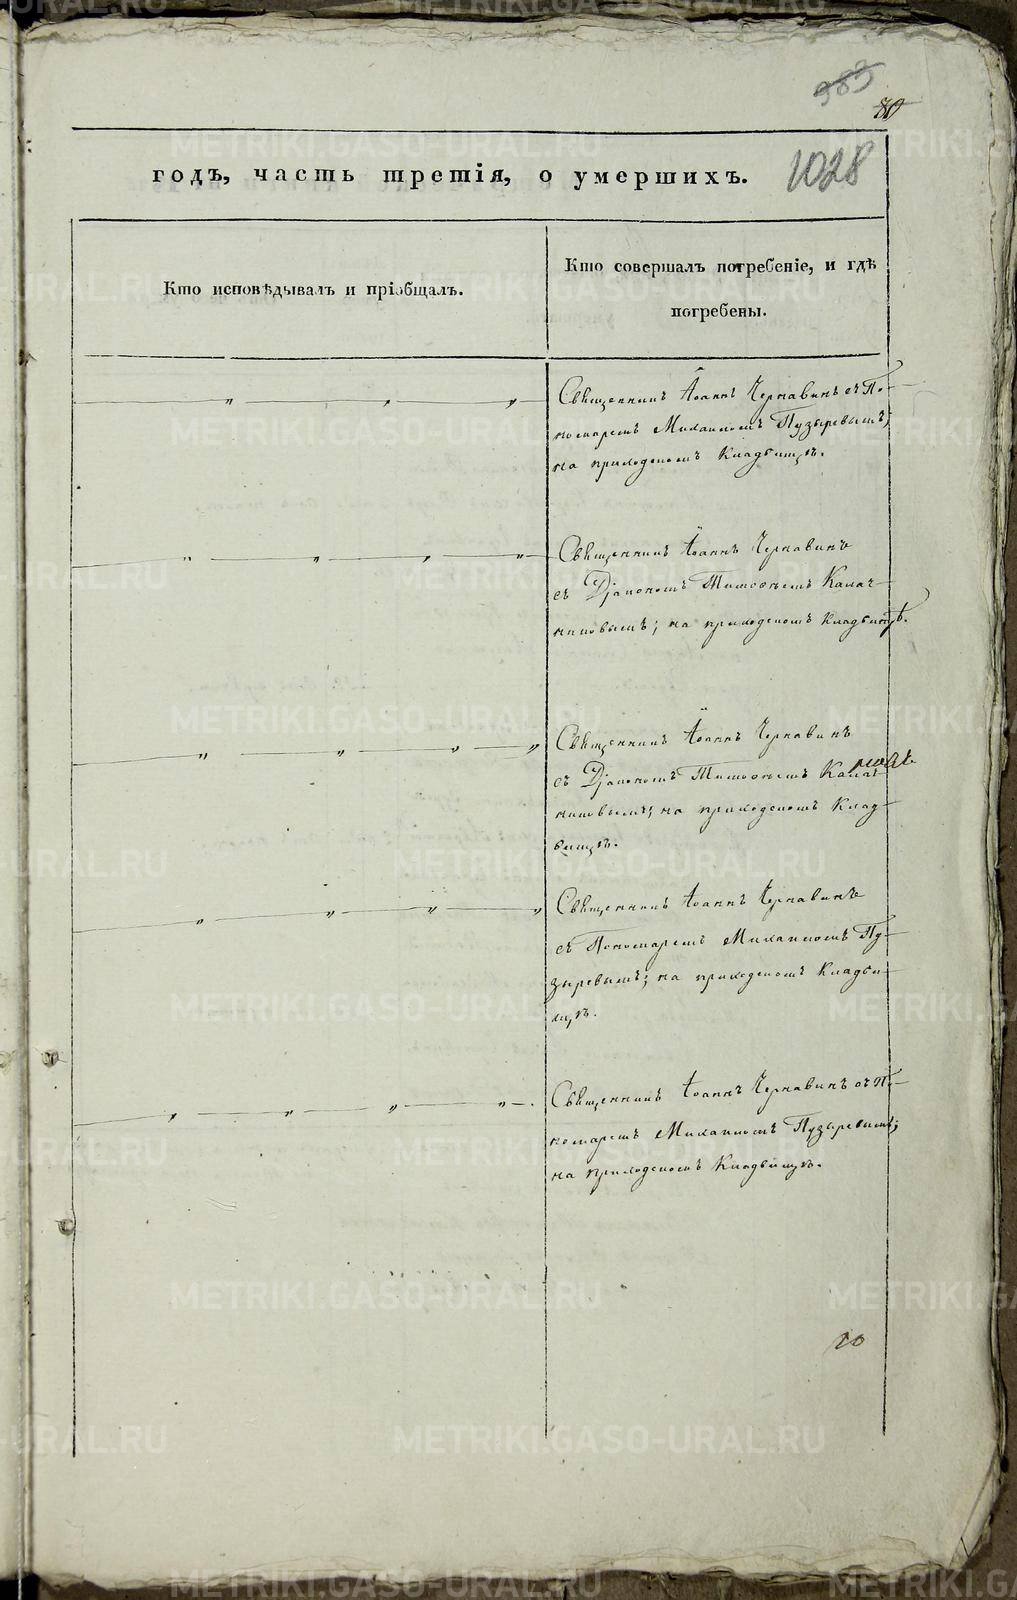 383
80
1028
годъ, часть третія, о умершихъ.
Кто исповѣдывалъ и пріобщалъ.
Кто совершалъ погребеніе, и гдѣ
погребены.
— „ — „ — „ —
Священникъ Іоаннъ Чернавинъ съ По-
номаремъ Михаиломъ Пузыревымъ;
на приходскомъ кладбищѣ.
— „ — „ — „ — „ —
Священникъ Іоаннъ Чернавинъ
съ Діакономъ Тимоѳеемъ Калач-
никовымъ; на приходскомъ кладбищѣ.
— „ — „ — „ — „
Священникъ Іоаннъ Чернавинъ
съ Діакономъ Тимоѳеемъ Калач-
никовымъ; на приходскомъ клад-
бищѣ.
— „ — „ — „ — „
Священникъ Іоаннъ Чернавинъ
съ Пономаремъ Михаиломъ Пу-
зыревымъ; на приходскомъ кладби-
щѣ.
— „ — „ — „ — „ —
Священникъ Іоаннъ Чернавинъ съ По-
номаремъ Михаиломъ Пузыревымъ;
на приходскомъ кладбищѣ.
METRIKI.GASO-URAL.RU